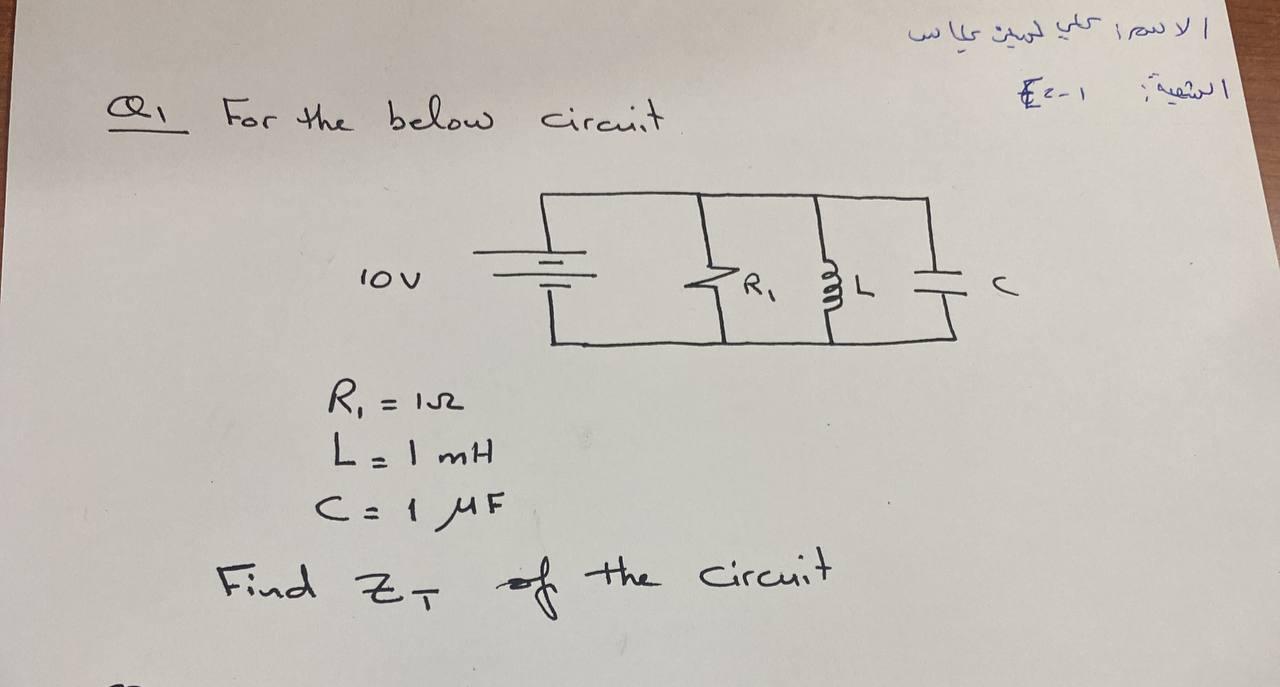 الاسم: علي حسين عباس
الشعبة: E2-1
Q1 For the below circuit
10V
R1
L
C
R1 = 1Ω
L = 1 mH
C = 1 μF
Find ZT of the circuit